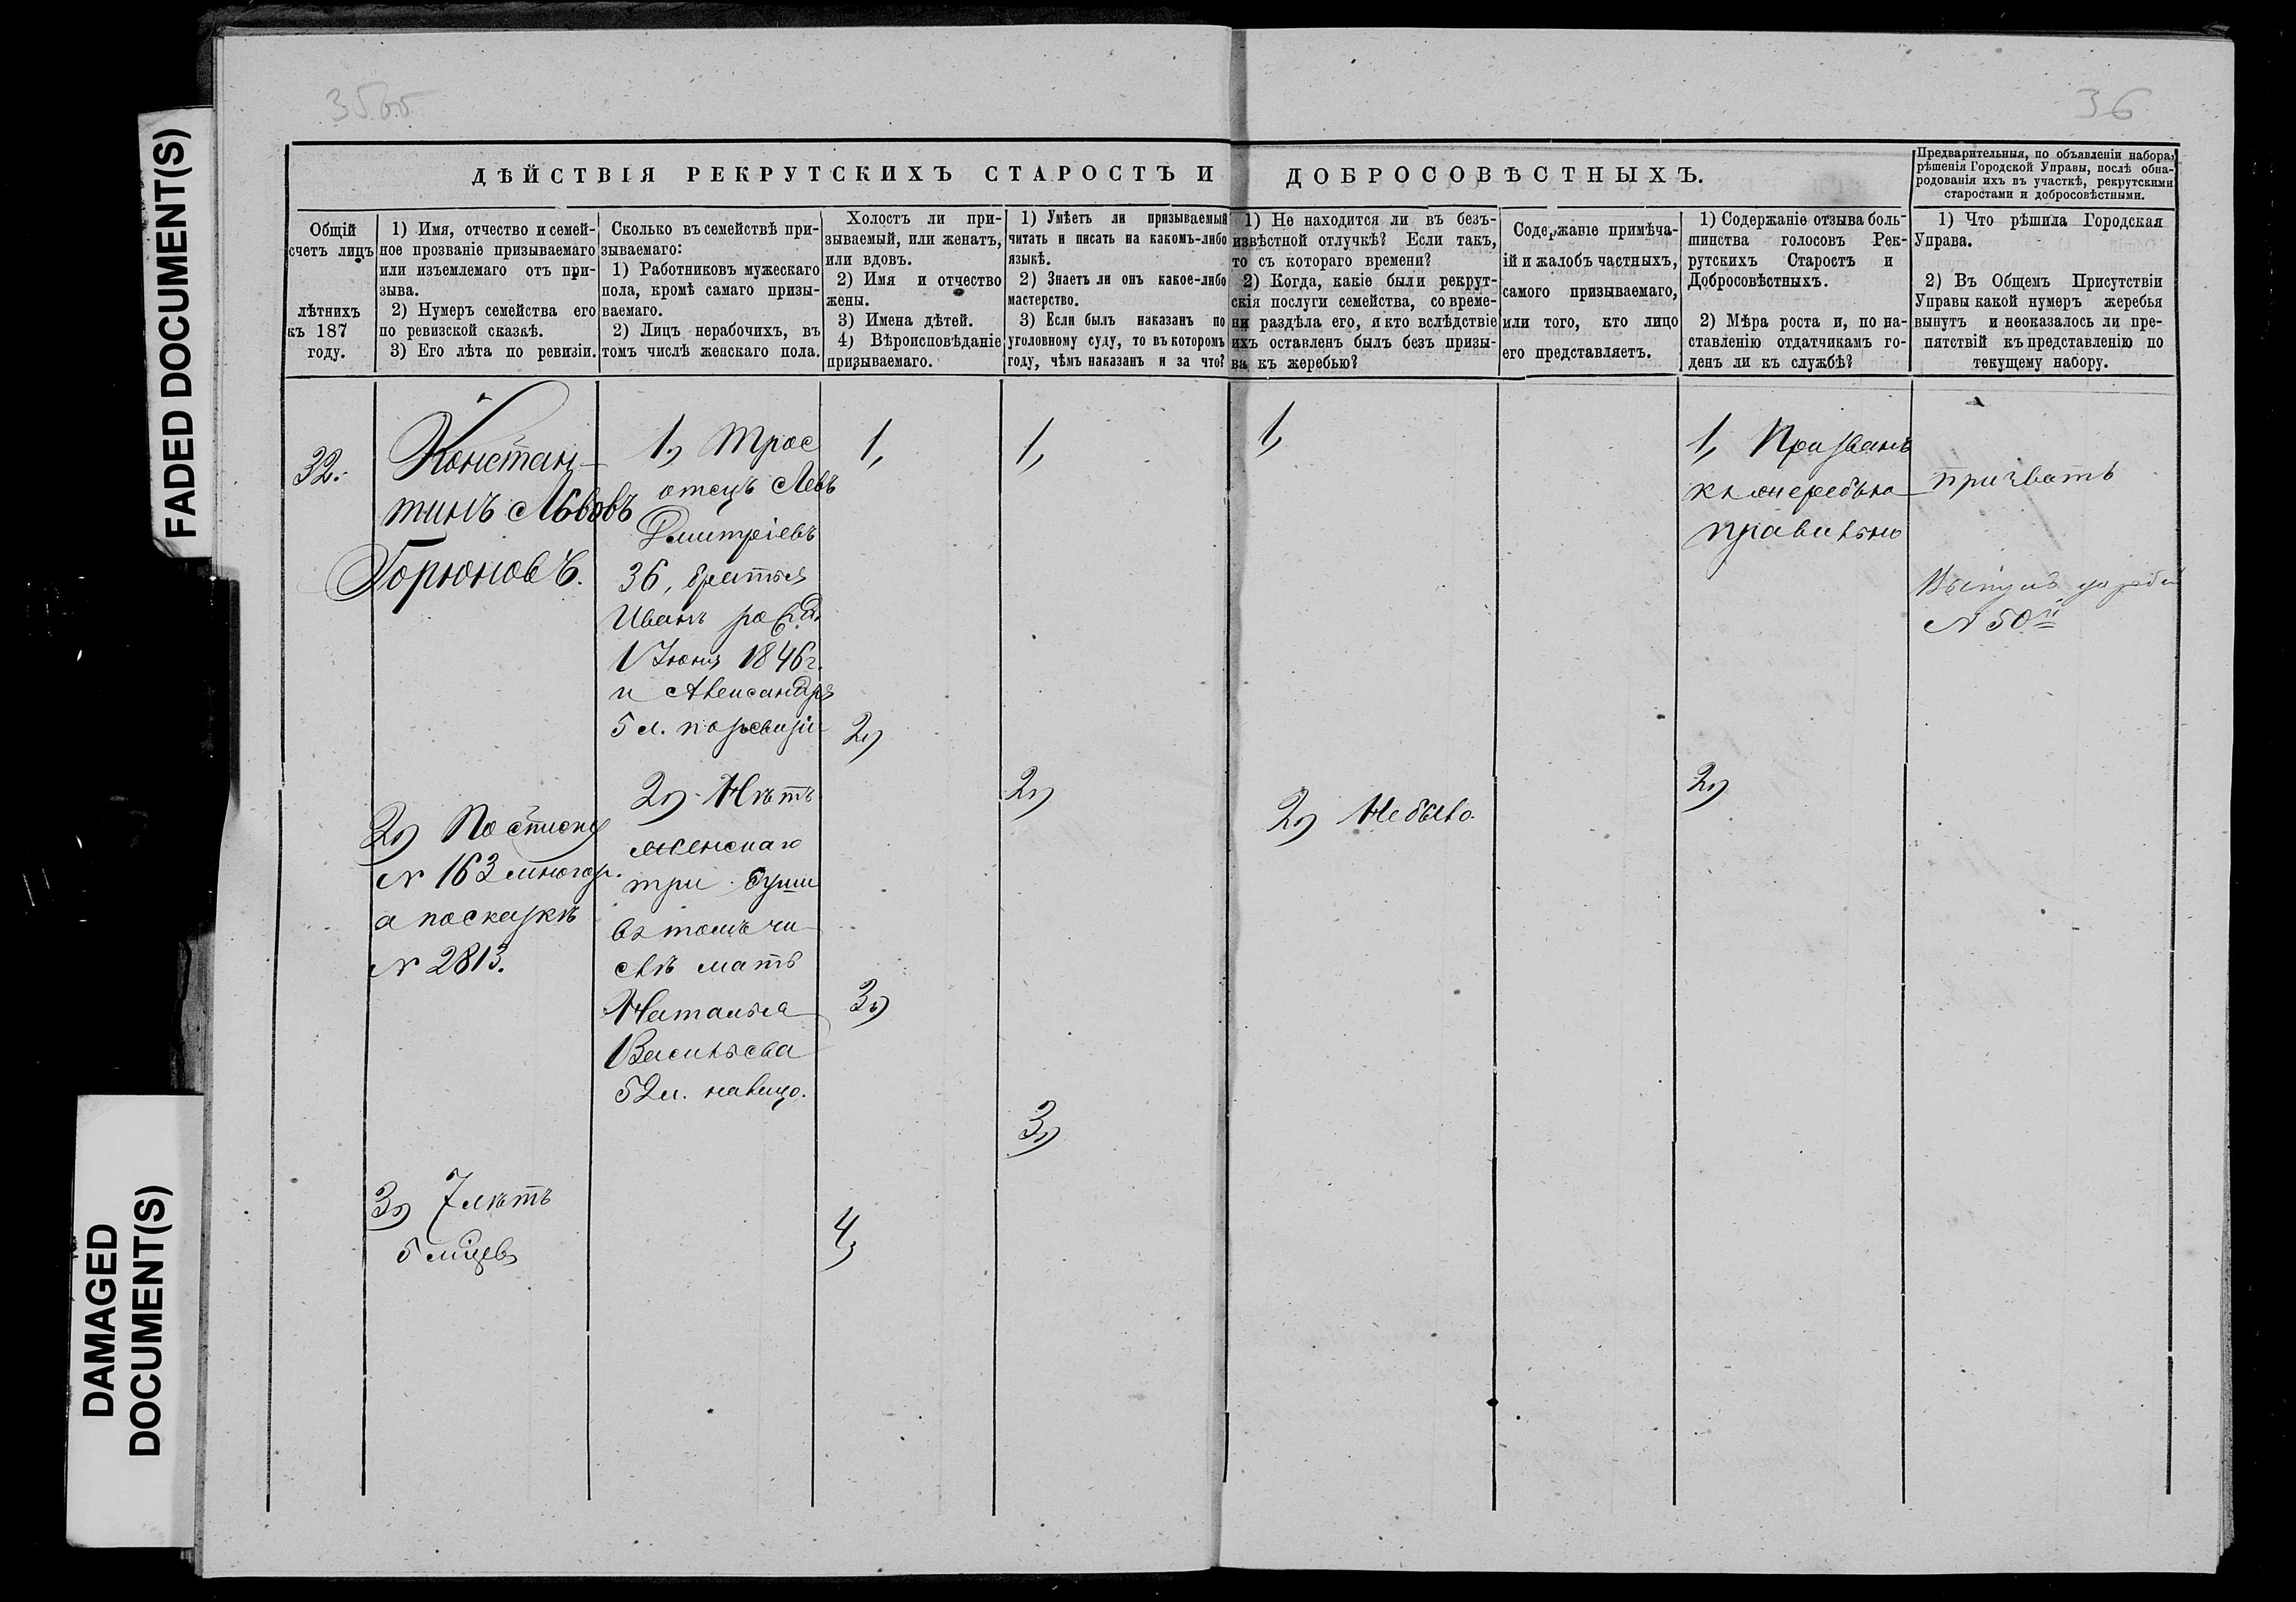 FADED DOCUMENT(S)
DAMAGED
DOCUMENT(S)
35об
36
ДѢЙСТВІЯ РЕКРУТСКИХЪ СТАРОСТЪ И ДОБРОСОВѢСТНЫХЪ.
Предварительныя, по объявленіи набора,
рѣшенія Городской Управы, послѣ обна-
родованія ихъ въ участкѣ, рекрутскими
старостами и добросовѣстными.
Общій
счетъ лицъ
лѣтнихъ
къ 187
году.
1) Имя, отчество и семей-
ное прозваніе призываемаго
или изъемлемаго отъ при-
зыва.
2) Нумеръ семейства его
по ревизской сказкѣ.
3) Его лѣта по ревизіи.
Сколько въ семействѣ при-
зываемаго:
1) Работниковъ мужескаго
пола, кромѣ самаго призы-
ваемаго.
2) Лицъ нерабочихъ, въ
томъ числѣ женскаго пола.
Холостъ ли при-
зываемый, или женатъ,
или вдовъ.
2) Имя и отчество
жены.
3) Имена дѣтей.
4) Вѣроисповѣданіе
призываемаго.
1) Умѣетъ ли призываемый
читать и писать на какомъ-либо
языкѣ.
2) Знаетъ ли онъ какое-либо
мастерство.
3) Если былъ наказанъ по
уголовному суду, то въ которомъ
году, чѣмъ наказанъ и за что?
1) Не находится ли въ безъ-
извѣстной отлучкѣ? Если такъ,
то съ котораго времени?
2) Когда, какіе были рекрут-
скія послуги семейства, со време-
ни раздѣла его, и кто вслѣдствіе
ихъ оставленъ былъ безъ призы-
ва къ жеребью?
Содержаніе примѣча-
ій и жалобъ частныхъ,
самого призываемаго,
или того, кто лицо
его представляетъ.
1) Содержаніе отзыва боль-
шинства голосовъ Рек-
рутскихъ Старостъ и
Добросовѣстныхъ.
2) Мѣра роста и, по на-
ставленію отдатчикамъ го-
денъ ли къ службѣ?
1) Что рѣшила Городская
Управа.
2) Въ Общемъ Присутствіи
Управы какой нумеръ жеребья
вынутъ и неоказалось ли пре-
пятствій къ представленію по
текущему набору.
32.
Констан-
тинъ Львовъ
Горюновъ.
2) По списку
№ 163 многор.
а по сказкѣ
№ 2813.
3) 7 лѣтъ
5 мѣцев
1) Трое
отецъ Левъ
Дмитріевъ
36, братья
Иванъ рожд.
1 Іюня 1846 г.
и Александръ
5 л. по ревизіи
2) Нѣтъ
женскаго
три души
въ томъ чи-
слѣ мать
Наталья
Васильева
52 л. налицо.
1,
2)
3)
4)
1,
2)
3)
1,
2) Не было.
1, Призванъ
къ жеребью
правильно
2)
призвать
Вынулъ жребій
№ 50й